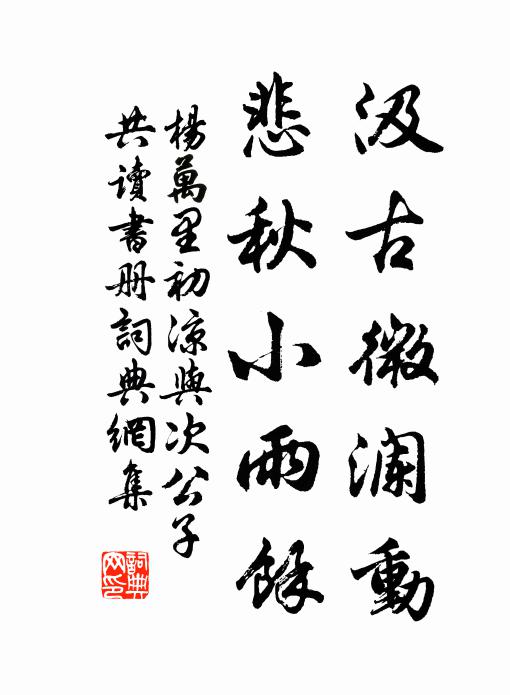 汲古微瀾動
悲秋小雨餘
楊萬里初涼與次公子
共讀書册詞典網集
詞典
网印